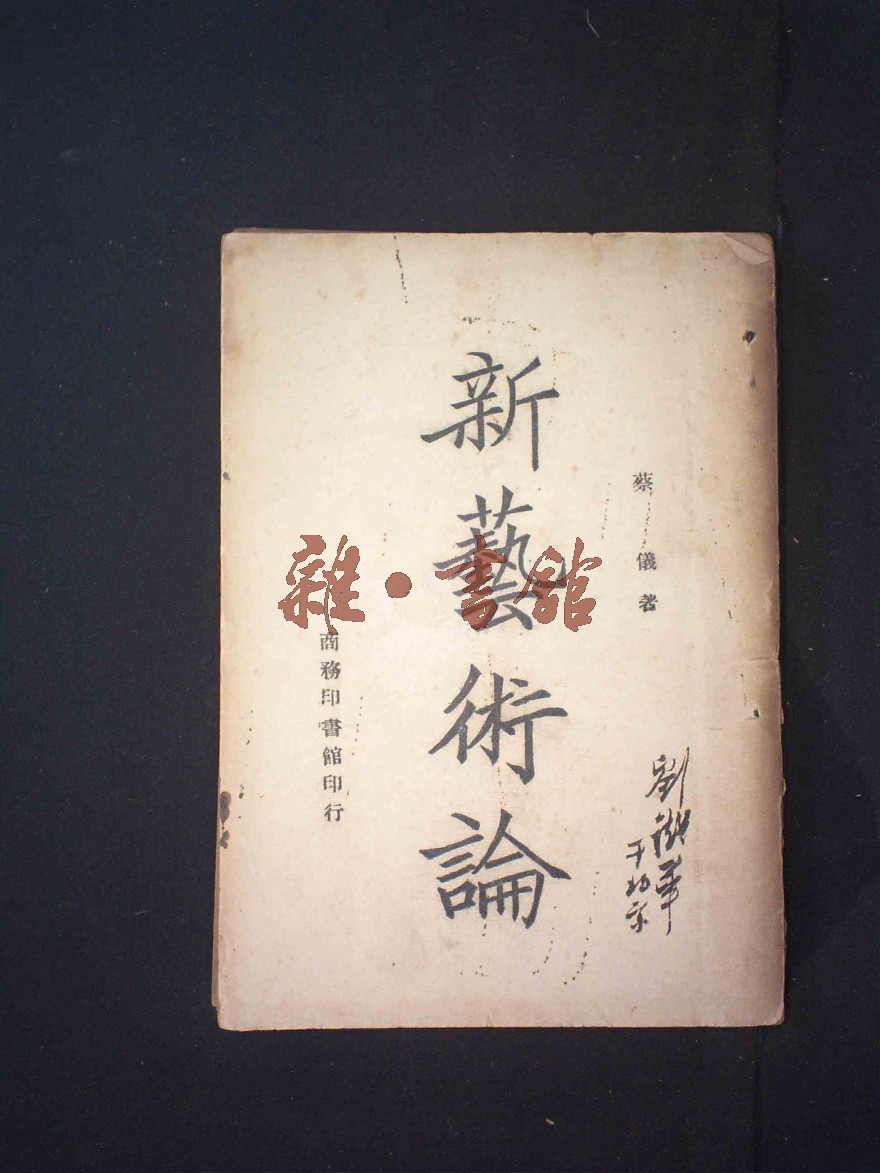 蔡儀著
新藝術論
商務印書館印行
雜·書館
劉
于北京